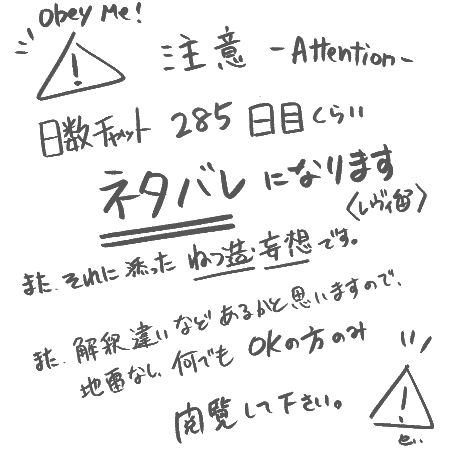 Obey Me!
注意 -Attention-
日数チャット 285日目くらい
ネタバレになります
〈レヴィ〉
また、それに添ったねつ造・妄想です。
また、解釈違いなどあるかと思いますので、
地雷なし、何でもOKの方のみ
閲覧して下さい。